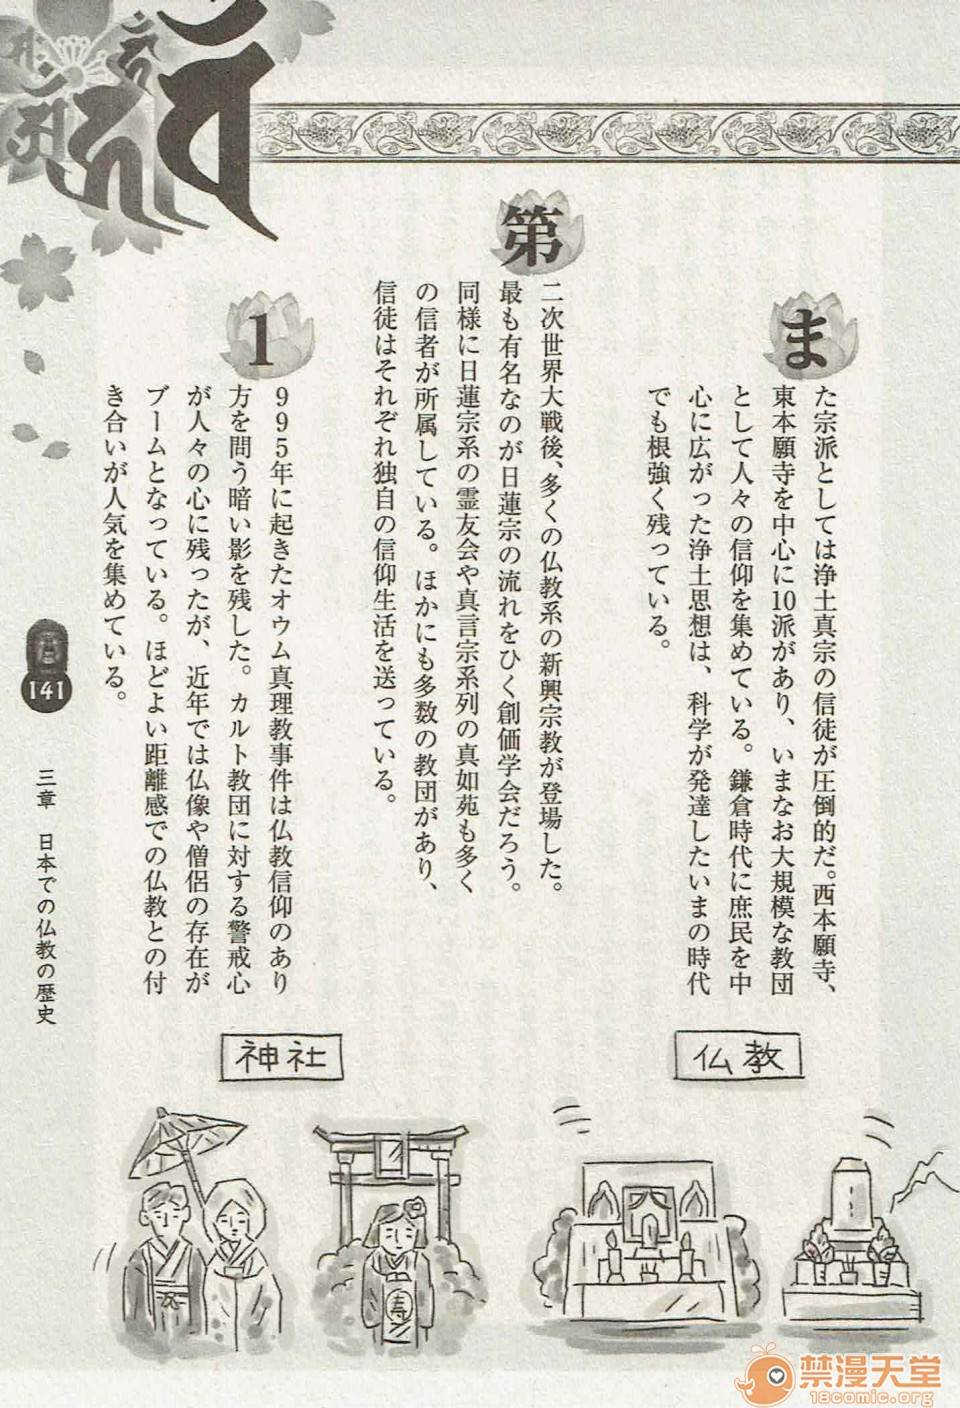 また宗派としては浄土真宗の信徒が圧倒的だ。西本願寺、
東本願寺を中心に10派があり、いまなお大規模な教団
として人々の信仰を集めている。鎌倉時代に庶民を中
心に広がった浄土思想は、科学が発達したいまの時代
でも根強く残っている。
第二次世界大戦後、多くの仏教系の新興宗教が登場した。
最も有名なのが日蓮宗の流れをひく創価学会だろう。
同様に日蓮宗系の霊友会や真言宗系列の真如苑も多く
の信者が所属している。ほかにも多数の教団があり、
信徒はそれぞれ独自の信仰生活を送っている。
1995年に起きたオウム真理教事件は仏教信仰のあり
方を問う暗い影を残した。カルト教団に対する警戒心
が人々の心に残ったが、近年では仏像や僧侶の存在が
ブームとなっている。ほどよい距離感での仏教との付
き合いが人気を集めている。
仏教
神社
寿
141
三章 日本での仏教の歴史
禁漫天堂
18comic.org